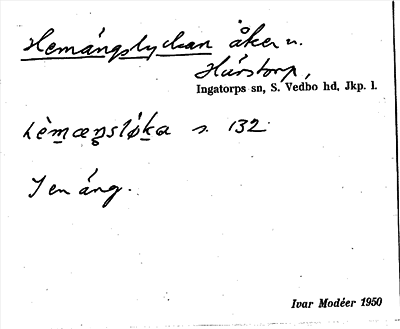 Hemängslyckan åker u.
Hárstorp,
Ingatorps sn, S. Vedbo hd, Jkp. l.
s. 132.
I en äng.
Ivar Modéer 1950